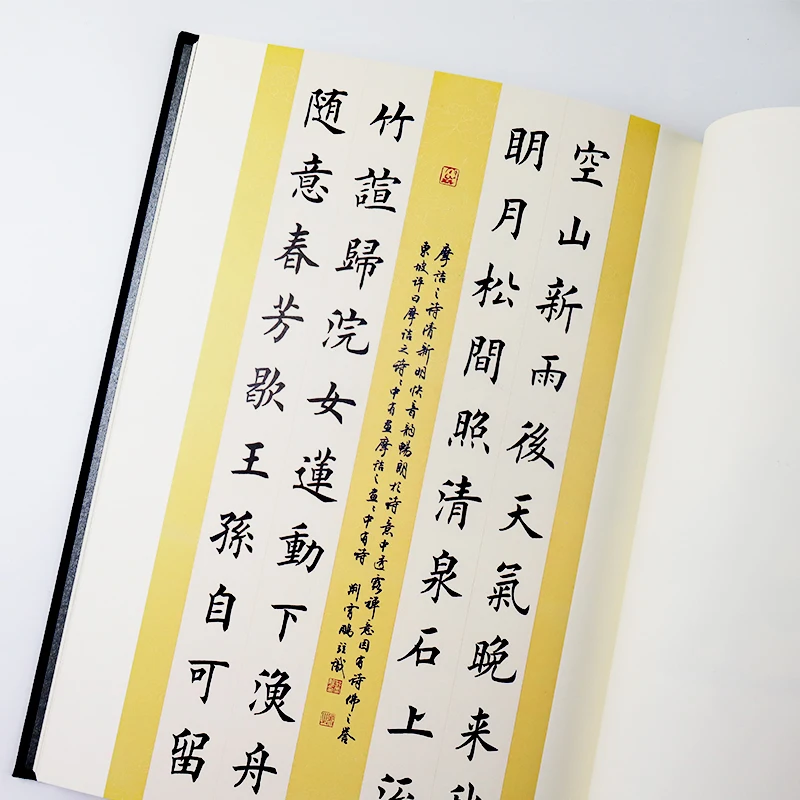 空山新雨後天氣晚来秋
明月松間照清泉石上流
摩詰之诗清新明快音韵暢朗於诗意中透露禅意因有诗佛之誉
東坡评曰摩詰之诗〻中有画摩詰之画〻中有诗 荆霄鹏 識
竹諠歸浣女蓮動下漁舟
随意春芳歇王孫自可留